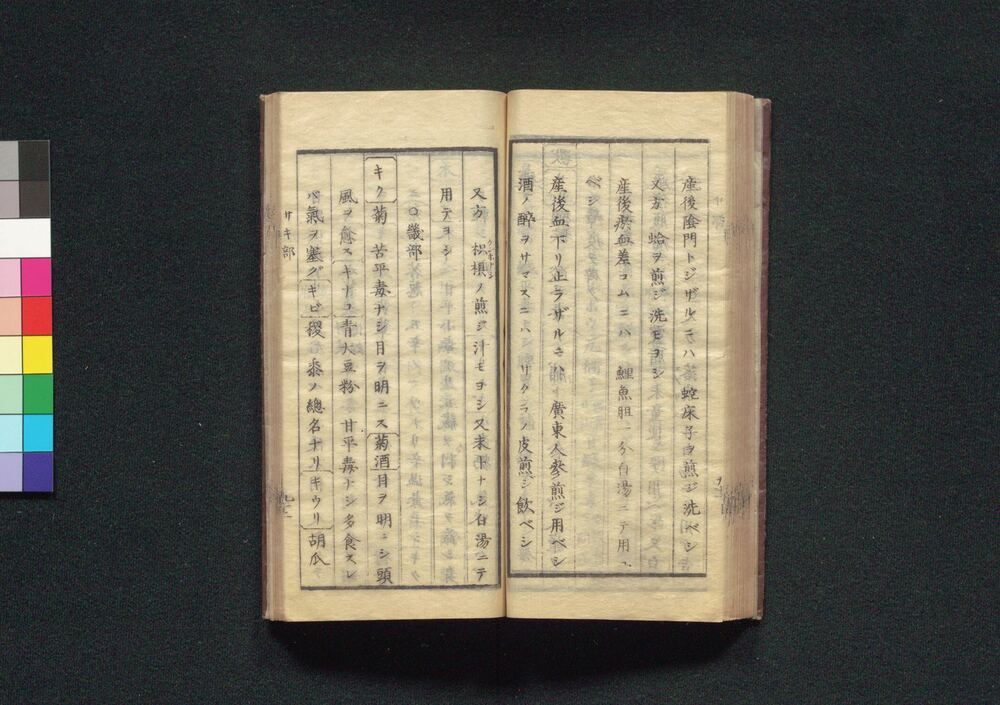 産後陰門トジザルニハ 蛇床子ヲ煎ジ洗ベシ
又方 蛤ヲ煎ジ洗モヨシ
産後瘀血差コムニハ 鯉魚胆一分白湯ニテ用ユ
ベシ
産後血下リ止ラザルニハ 廣東人參煎ジ用ベシ
酒ノ酔ヲサマスニハ サクラノ皮煎ジ飲ベシ
又方 枳椇ノ煎ジ汁モヨシ又末トナシ白湯ニテ
用テヨシ
○畿部
キク 菊 苦平毒ナシ目ヲ明ニス 菊酒 目ヲ明ニシ頭
風ヲ愈ス キナコ 青大豆粉 甘平毒ナシ多食スレ
バ氣ヲ塞グ キビ 稷 黍ノ總名ナリ キウリ 胡瓜
サキ部